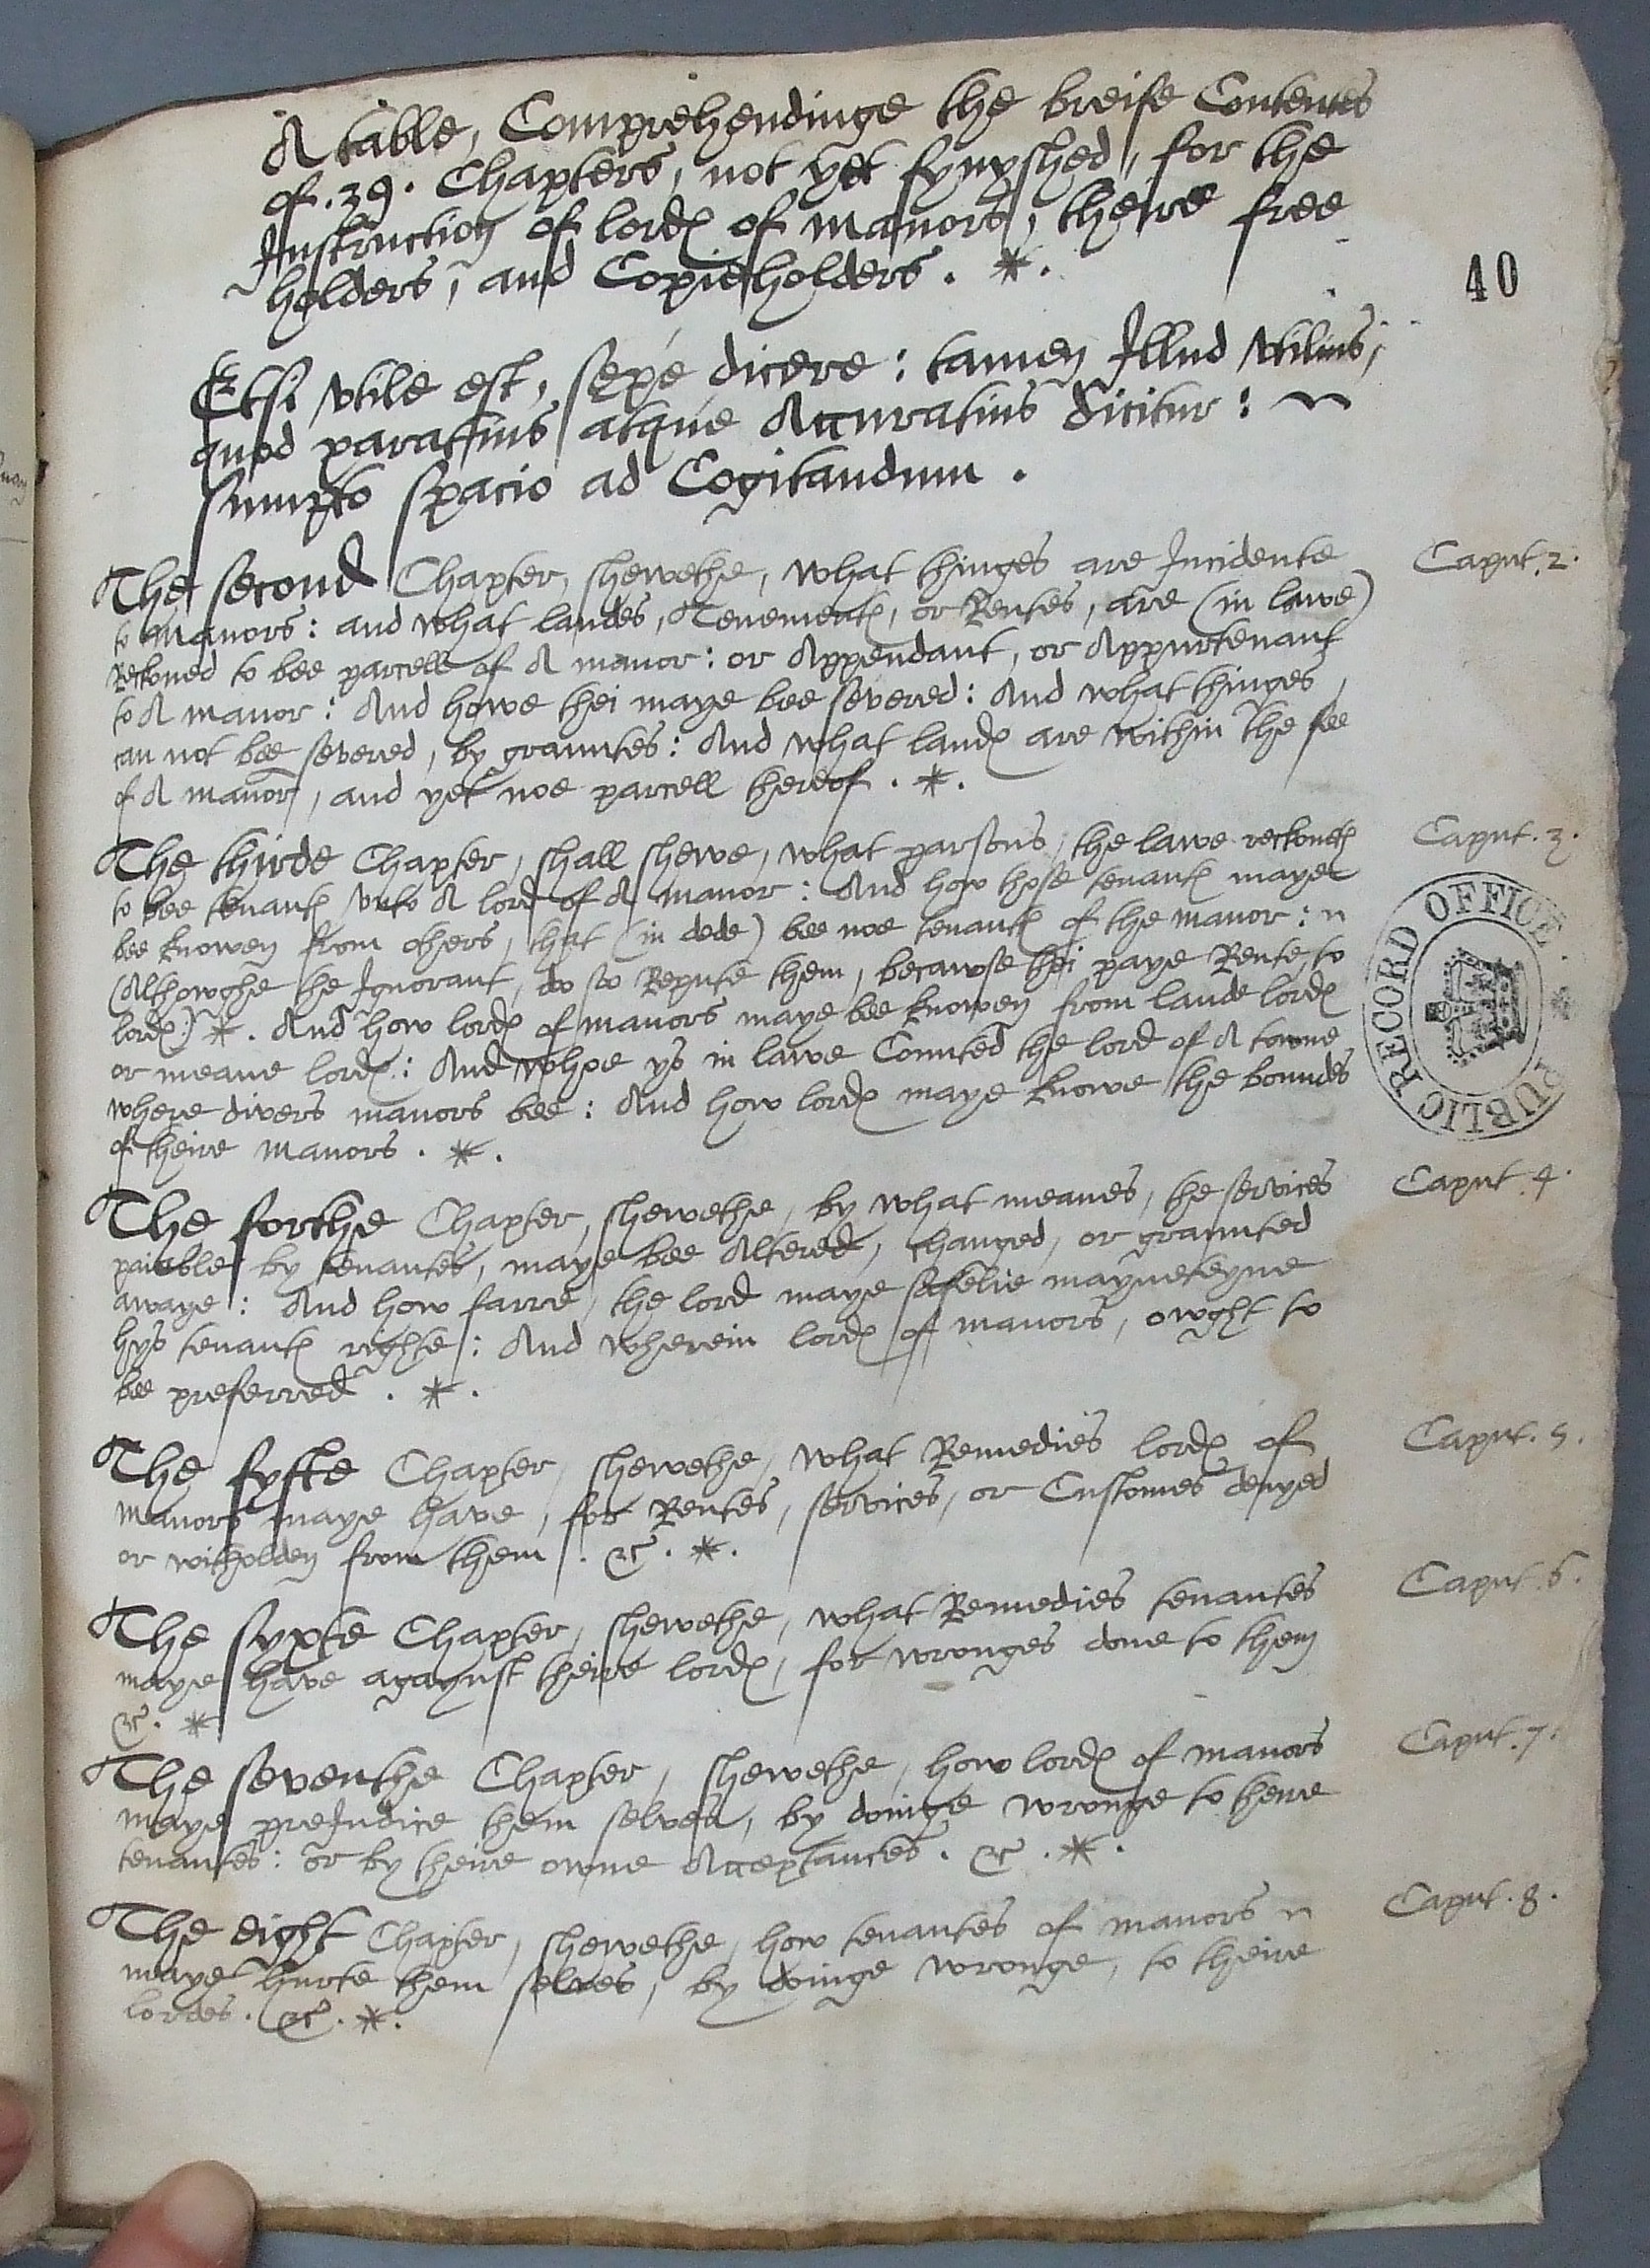 A table, Comprehendinge the breife Contentes
of .39. Chapters, not yet fynyshed, for the
Instruction of lordes of manors, theire free
holders, and Copieholders . * .
40
Etsi vtile est, sepe dicere : tamen Illud vtilius,
quod paratius atque Accuratius dicitur :
sumpto spacio ad Cogitandum .
The second Chapter, shewethe, what thinges are Incidente
Caput .2.
to manors : and what landes, Tenementes, or Rentes, are (in lawe)
Reckoned to bee parcell of A manor : or Appendant, or Appurtenant
to A manor : And howe thei maye bee severed : And what thinges
can not bee severed, by grauntes : And what landes are within the fee
of A manor, and yet noe parcell thereof . * .
The thirde Chapter, shall shewe, what parsons, the lawe reckoneth
Caput . 3.
to bee tenantes vnto A lord of A manor : And how those tenantes maye
bee knowen from others, that (in dede) bee noe tenantes of the manor :
(Althowghe the Ignorant, do so Repute them, becawse thei paye Rente, to
lordes :) * . And how lordes of manors maye bee knowen from lande lordes
or meane lordes : And whoe ys in lawe Counted the lord of A towne
where divers manors bee : And how lordes maye knowe the boundes
of theire manors . * .
PUBLIC RECORD OFFICE
The forthe Chapter, shewethe, by what meanes, the services
Caput .4.
paieble by tenantes, maye bee Altered, changed, or graunted
awaye : And how farre, the lord maye safelie mayneteyne
hys tenantes righte : And wherein lordes of manors, owght to
bee preferred . * .
The fyfte Chapter, shewethe, what Remedies lordes of
Caput . 5.
manors maye have, for Rentes, services, or Customes denyed
or witholden from them . &c . * .
The syxte Chapter, shewethe, what Remedies tenantes
Caput .6.
maye have agaynst theire lordes, for wronges done to them
&c . *
The seventhe Chapter, shewethe, how lordes of manors
Caput .7.
maye preJudice them selves, by doinge wronge to theire
tenantes : or by theire owne Acceptances . &c . * .
The eight Chapter, shewethe, how tenantes of manors
Caput . 8 .
maye hurte them selves, by doinge wronge, to theire
lordes . &c . * .